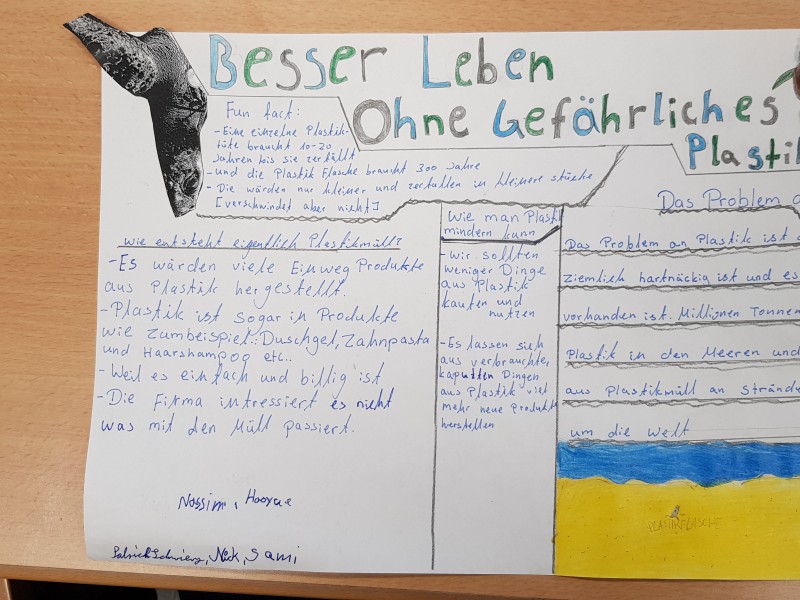 Besser Leben
Ohne Gefährliches
Plastik
Fun fact:
- Eine einzelne Plastik-
tüte braucht 10-20
Jahren bis sie zerfällt
- und die Plastik Flasche braucht 300 Jahre
- Die würden nur kleiner und zerfallen in kleinere stücke
[verschwindet aber nicht]
wie entsteht eigentlich Plastikmüll?
- Es würden viele Einweg Produkte
aus Plastik hergestellt.
- Plastik ist sogar in Produkte
wie Zumbeispiel: Duschgel, Zahnpasta
und Haarshampoo etc..
- Weil es einfach und billig ist
- Die Firma intressiert es nicht
was mit den Müll passiert.
Nassim,
Sami
wie man Plasti
mindern kann
- wir sollten
weniger Dinge
aus Plastik
kaufen und
nutzen
- Es lassen sich
aus verbrauchte,
kaputten Dingen
aus Plastik viel
mehr neue Produkte
herstellen
Das Problem a
Das Problem an Plastik ist d
ziemlich hartnäckig ist und es
vorhanden ist. Millionen Tonnen
Plastik in den Meeren und
aus Plastikmüll an Strände
um die Welt
PLASTIKFLASCHE